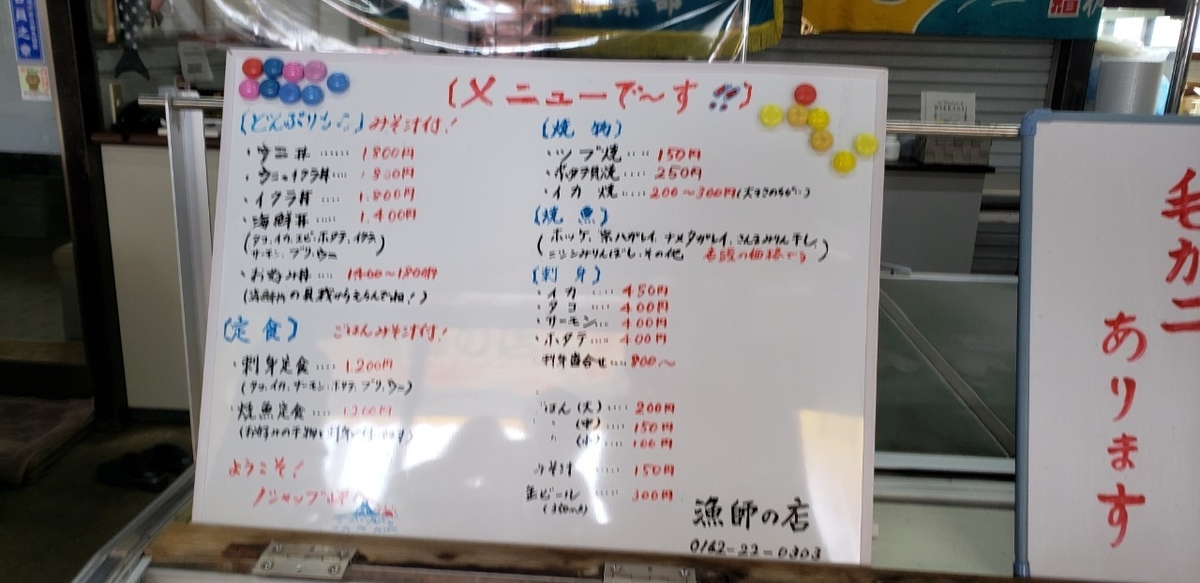 (メニューで〜す!!)
(どんぶり) みそ汁付!
・ウニ丼 …… 1800円
・ウニ・イクラ丼 … 1800円
・イクラ丼 …… 1.800円
・海鮮丼 …… 1.400円
(タコ、イカ、エビ、ホタテ、イクラ
サーモン、ブリ、ウニ)
・お好み丼 1400〜1800円
(海鮮丼の具材からえらんでね!)
(定食) ごはんみそ汁付!
・刺身定食 …… 1.200円
(タコ、イカ、サーモン、ホタテ、ブリ、ウニ)
・焼魚定食 …… 1.200円
ようこそ!
ノシャップ岬へ
(焼物)
・ツブ焼 …… 150円
・ホタテ貝焼 …… 250円
・イカ焼 …… 200〜300円
(焼魚)
(ホッケ、宗八ガレイ、ナメタガレイ、さんまみりん干し、
ニシンみりんぼし、その他
(刺身)
・イカ …… 450円
・タコ …… 400円
・サーモン …… 400円
・ホタテ …… 400円
刺身盛合せ …… 800〜
ごはん(大) …… 200円
〃 (中) …… 150円
〃 (小) …… 100円
みそ汁 …… 150円
缶ビール …… 300円
漁師の店
0162-22-0303
毛がニ
あります